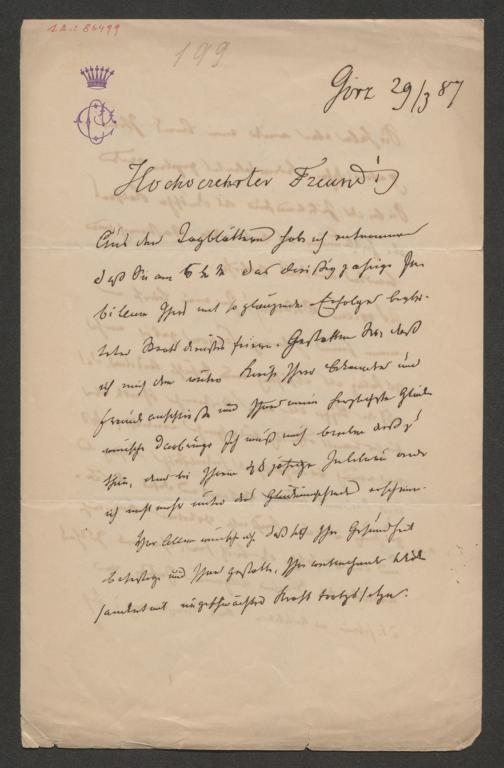 I.N. 86499
199
Görz 29/3 87
Hochverehrter Freund!
Aus den Tagblättern habe ich entnommen
daß Sie am das dreißigjährige Ju-
biläum Ihres mit so glänzendem Erfolge beglei-
teten feiern. Gestatten Sie, daß
ich mich dem Kreise Ihrer Bekannten und
Freunde anschließe und Ihnen meine herzlichsten Glück-
wünsche darbringe. Ich muß mich
thun, denn bei Ihrem jährigen Jubiläum werde
ich nicht mehr unter den Glückwünschenden erscheinen.
Vor Allem wünsche ich daß sich Ihre Gesundheit
befestige und Ihnen gestatte, Ihre
mit ungeschwächter Kraft fortzusetzen.